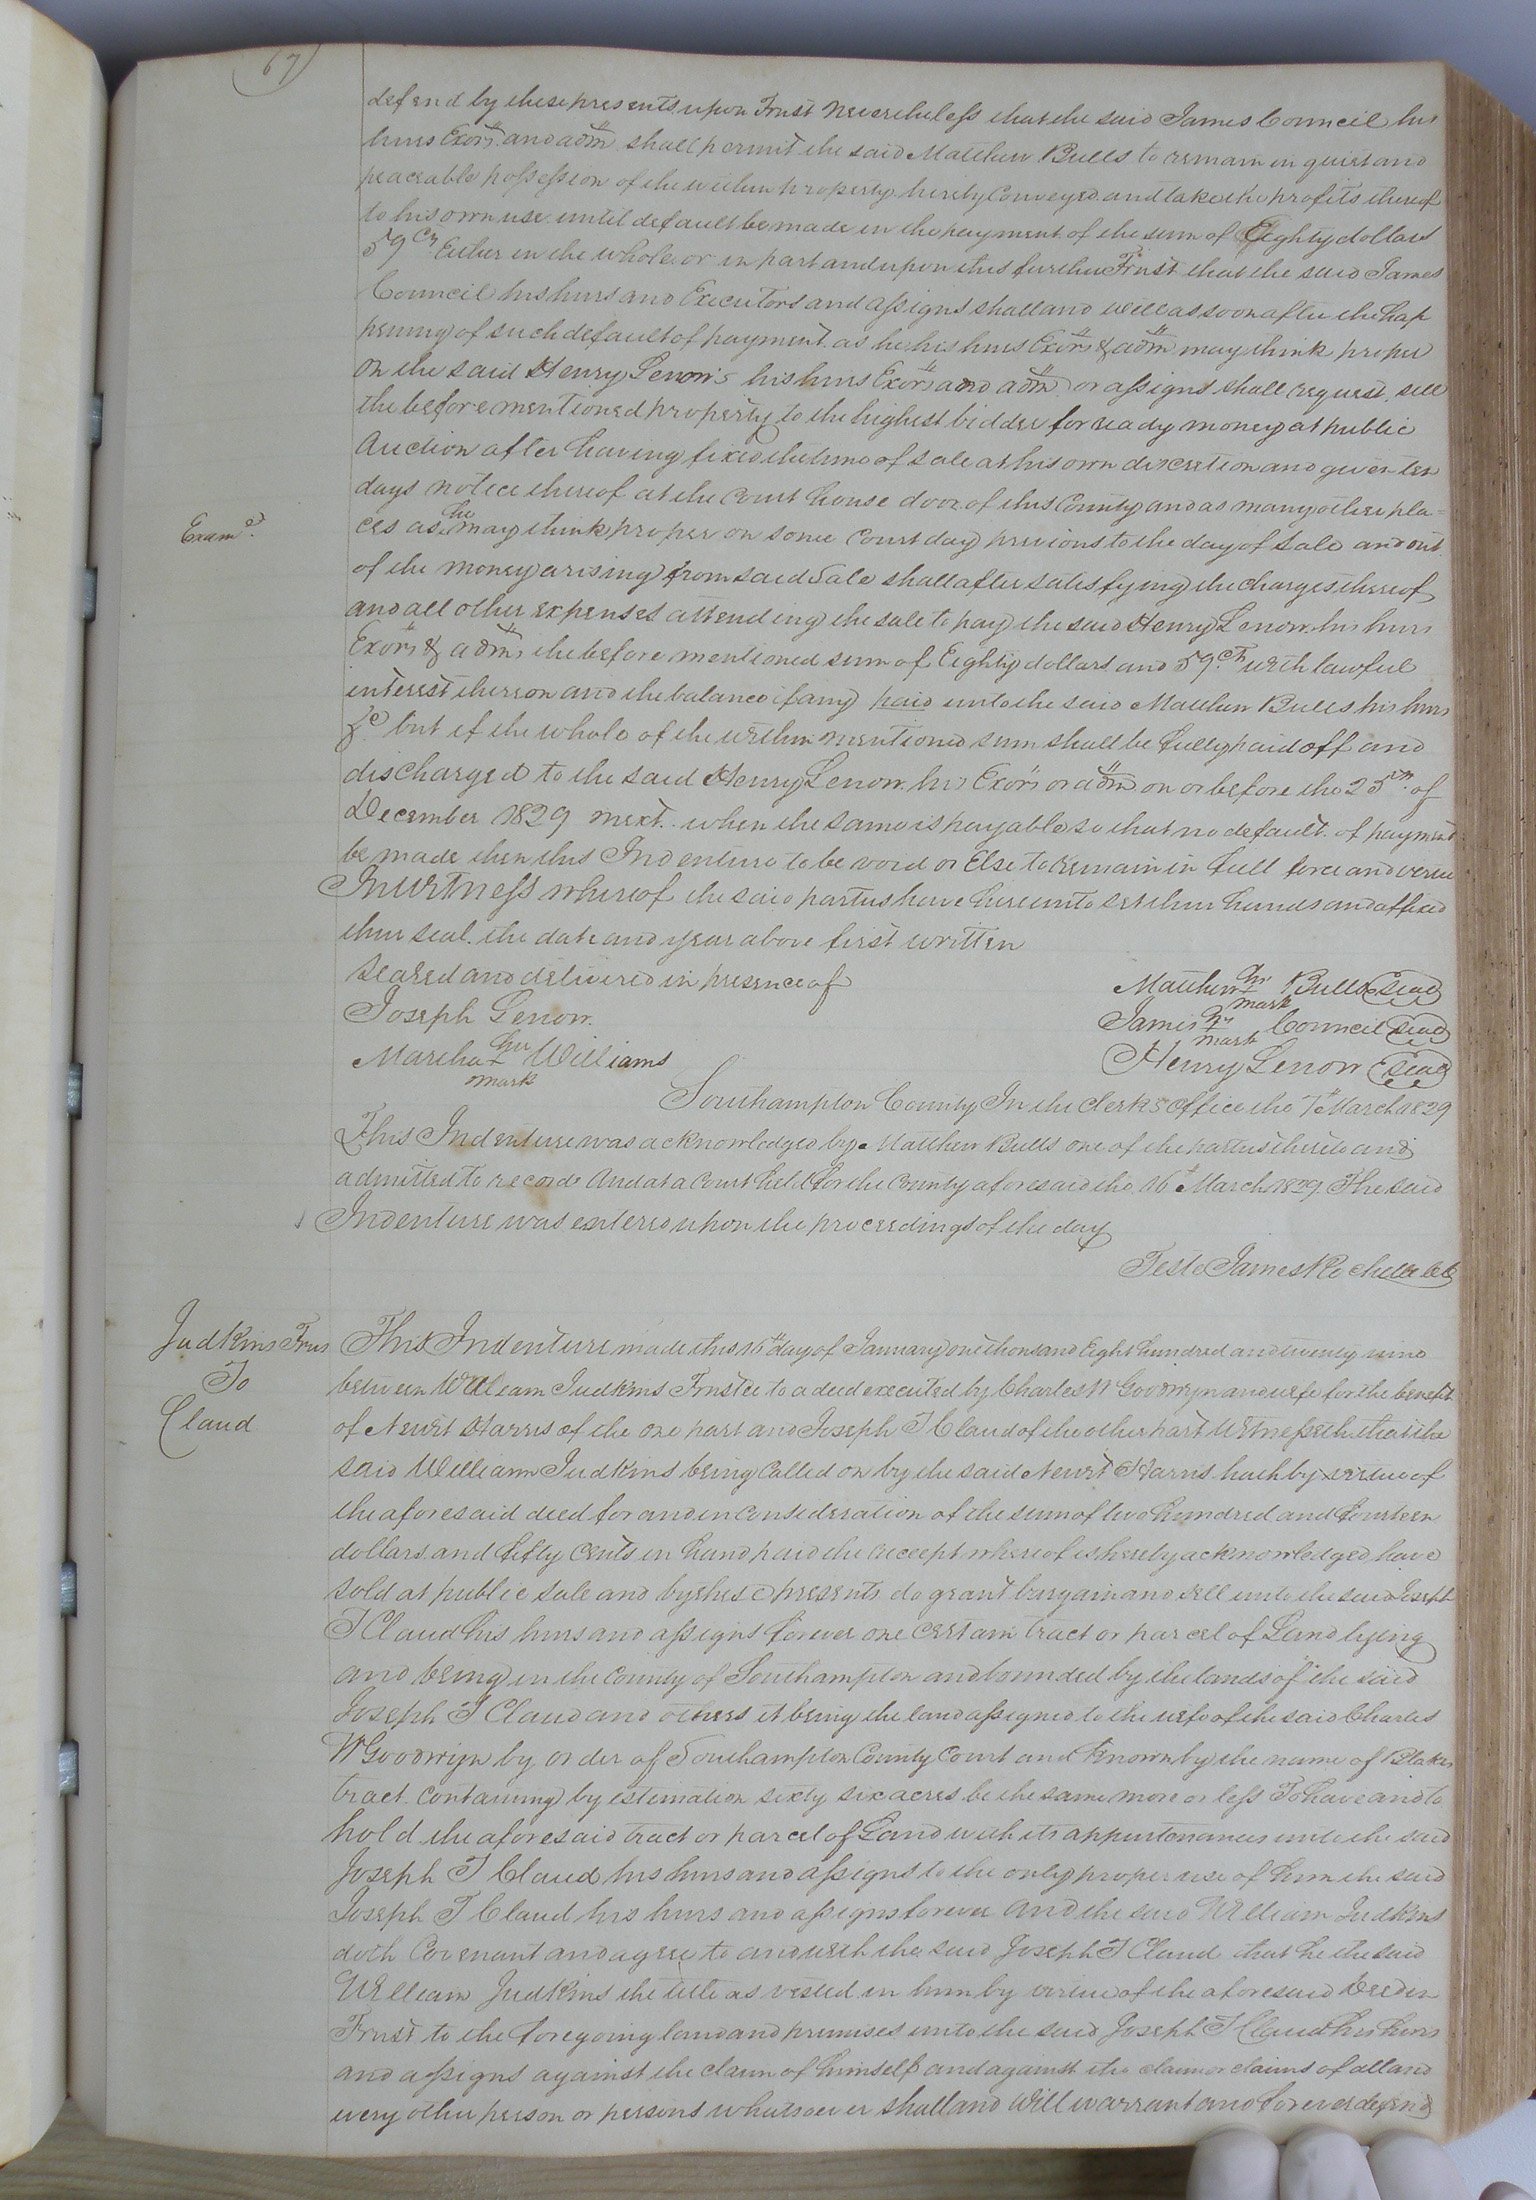 67
defend by these presents upon Trust Nevertheless that the said James Council his
heirs Exors and adm shall permit the said Matthew Bulls to remain in quiet and
peaceable possession of the within property hereby Conveyed and take the profits thereof
to his own use until default be made in the payment of the sum of Eighty dollars
59 Cts Either in the whole or in part and upon this further Trust that the said James
Council his heirs and Executors and assigns shall and will as soon after the hap
pening of such default of payment as he his heirs Exors & adm may think proper
or the said Henry Lenow his heirs Exors and adm or assigns shall request sell
the before mentioned property to the highest bidder for ready money at public
Auction after having fixed the time of sale at his own discretion and given ten
days notice thereof at the Court house door of this County and as many other pla=
Examd.
ces as he may think proper on some Court day previous to the day of sale and out
of the money arising from said Sale shall after satisfying the charges thereof
and all other expenses attending the sale to pay the said Henry Lenow his heirs
Exors & adms the before mentioned sum of Eighty dollars and 59 Cts with lawful
interest thereon and the balance if any paid unto the said Matthew Bulls his heirs
&c but if the whole of the within mentioned sum shall be fully paid off and
discharged to the said Henry Lenow his Exors or adm on or before the 25th of
December 1829 next when the same is payable so that no default of payment
be made then this Indenture to be void or Else to remain in full force and virtue
In witness whereof the said parties have hereunto set their hands and affixed
their seal the date and year above first written
Sealed and delivered in presence of
Matthew his mark Bulls seal
Joseph Lenow
James his mark Council seal
Martha her mark Williams
Henry Lenow seal
Southampton County In the Clerks Office the 7th March 1829
This Indenture was acknowledged by Matthew Bulls one of the parties thereto and
admitted to record And at a Court held for the County aforesaid the 16th March 1829 The said
Indenture was entered upon the proceedings of the day
Teste James Rochelle
Judkins Trus
To
Claud
This Indenture made this 16th day of January one thousand Eight hundred and twenty nine
between William Judkins Trustee to a deed executed by Charles W Goodwyn and wife for the benefit
of Newit Harris of the one part and Joseph T Claud of the other part Witnesseth that the
said William Judkins being Called on by the said Newit Harris hath by virtue of
the aforesaid deed for and in Consideration of the sum of two hundred and fourteen
dollars and fifty Cents in hand paid the receept whereof is hereby acknowledged have
sold at public sale and by these presents do grant bargain and sell unto the said Joseph
T Claud his heirs and assigns forever one certain tract or parcel of Land lying
and being in the County of Southampton and bounded by the lands of the said
Joseph T Claud and others it being the land assigned to the wife of the said Charles
W Goodwyn by order of Southampton County Court and Known by the name of Blakes
tract Containing by estimation sixty six acres be the same more or less To have and to
hold the aforesaid tract or parcel of Land with its appurtenances unto the said
Joseph T Claud his heirs and assigns to the only proper use of him the said
Joseph T Claud his heirs and assigns forever And the said William Judkins
doth Covenant and agree to and with the said Joseph T Claud that he the said
William Judkins the title as vested in him by virtue of the aforesaid Deed in
Trust to the foregoing land and premises unto the said Joseph T Claud his heirs
and assigns against the claim of himself and against the claim or claims of all and
every other person or persons whatsoever shall and will warrant and forever defend